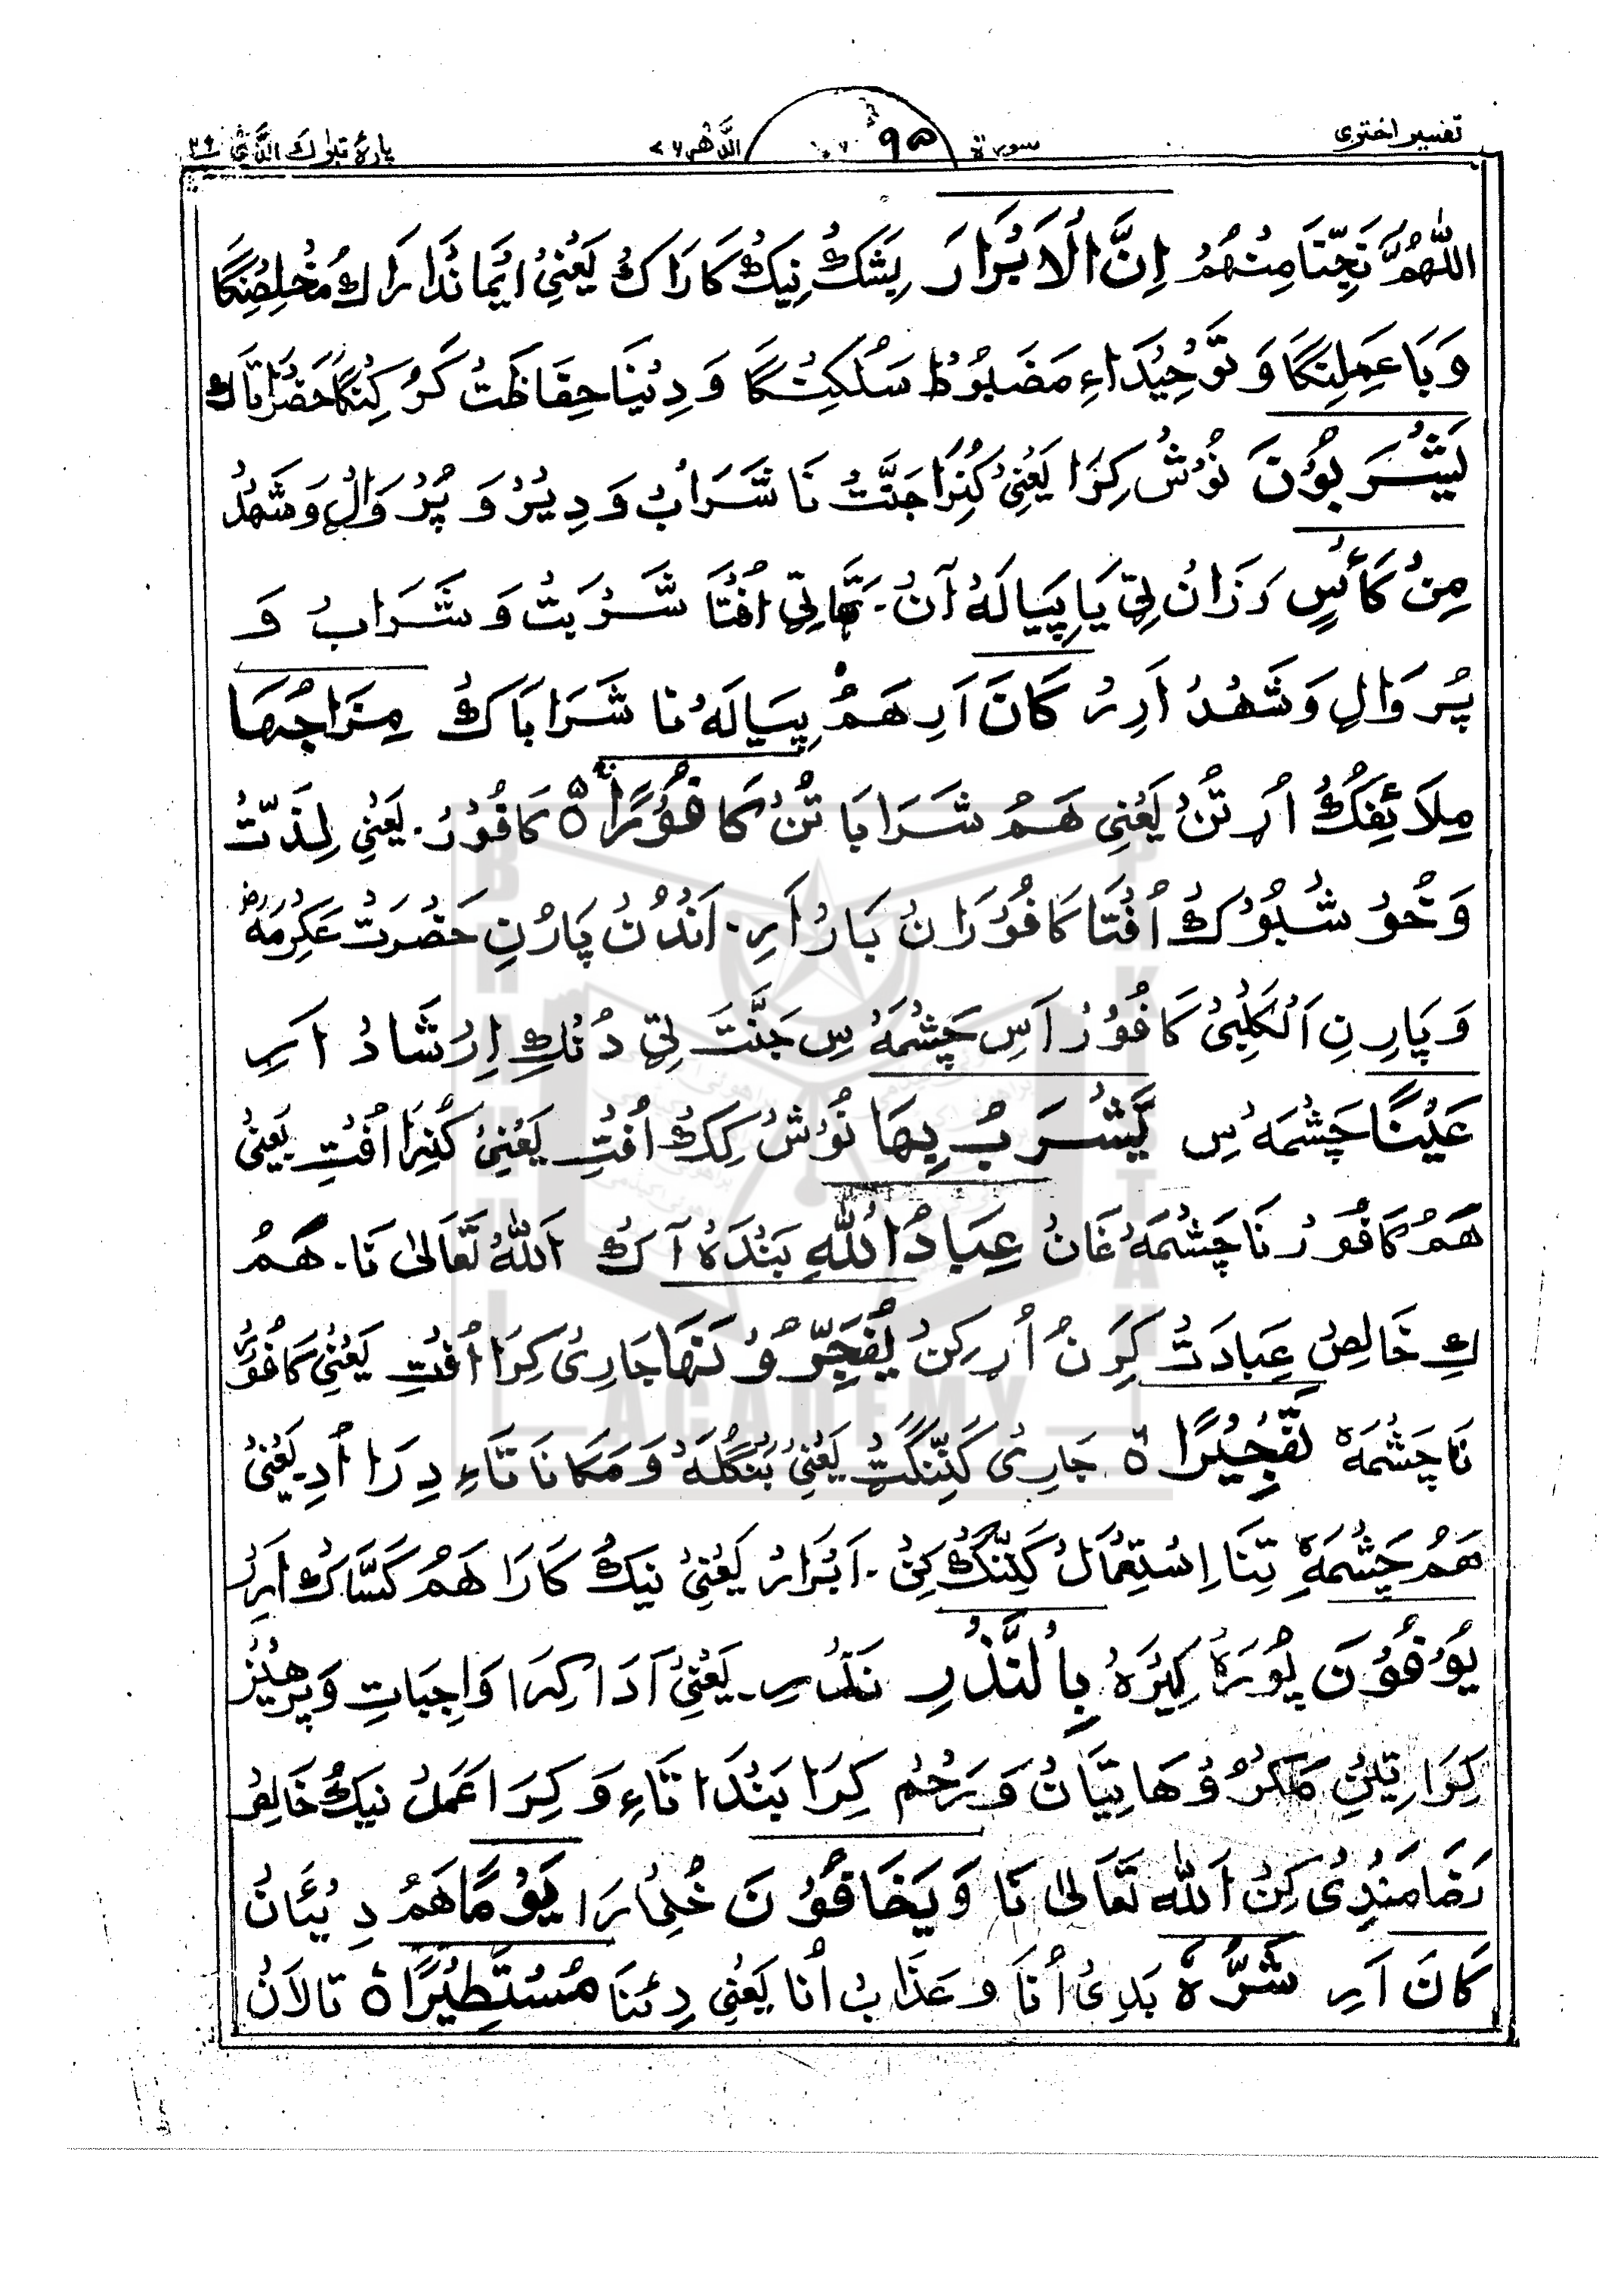 تفسیر اختری سورۃ ۹۵ الدَّهُر ۷۶ پارۂ تَبٰرَكَ الَّذِیْ ۲۹
اَللّٰهُمَّ نَجِّنَا مِنْهُمْ اِنَّ الْاَبْرَارَ بِشَكْ نِیَكْ كَارَاكْ یَعْنِیْ اِیْمَانْدَارَاكْ مُخْلِصِنْگَا
وَبَا عَمِلِنْگَا وَ تَوْحِیْدَاءِ مَضَبُوْط سَلْكِنْگَا وَ دِیْنَا حِفَاظَتْ كَرْ كِنْگَا حَضْرَاتَاكْ
یَشْرَبُوْنَ نُوْشْ كِرَا یَعْنِیْ كُنِرَا جَنَّتْ نَا شَرَابْ وَ دِیْرْ وَ پُرْوَالْ وَ شَهْدْ
مِنْ كَاْسٍ رَزَانْ لِیّ یَا پِیَالَهْ آنْ۔ هَالِیّ اُفْتَا شَرْبَتْ وَ شَرَابْ وَ
پُرْوَالِ وَ شَهْدْ اَرِرْ كَانَ اَرِ هَمْ پِیَالَهْ نَا شَرَابَاكْ مِزَاجُهَا
مِلَائِفَكْ اُرِتَنْ یَعْنِی هَمْ شَرَابَا تَنْ كَافُوْرًا ۵ كَافُوْرْ۔ یَعْنِیْ لِذَّتْ
وَ خُوْشْبُوْكْ اُفْتَا كَافُوْرَانْ بَارْ اَرِ۔ اَنْدُنْ پَارُنِ حَضْرَتْ عَكْرِمَهْ رض
وَ پَارِنِ اَلْكَلْبِیْ كَافُوْرْ اَسِ چَشْمَهْ سِ جَنَّتَ لِیّ دُنْكِ اِرْشَادْ اَرِ
عَیْنًا چَشْمَهْ سِ یَّشْرَبُ بِهَا نُوْشْ كِكْ اُفْتِ یَعْنِیْ كُنِرَا اُفْتِ یَعْنِیْ
هَمْ كَافُوْرْ نَا چَشْمَهْ غَانْ عِبَادُ اللّٰهِ بَنْدَهْ آكْ اَللّٰهْ تَعَالٰی نَا۔ هَمْ
كِ خَالِصْ عِبَادَتْ كِرَنْ اُرِكِنْ یُفَجِّرُوْنَهَا جَارِیْ كِرَا اُفْتِ یَعْنِیْ كَافُوْرْ
نَا چَشْمَهْ تَفْجِیْرًا ۵ جَارِیْ كَنِّنْگَتْ یَعْنِیْ بَنْگُلَهْ وَ مَكَانَاتَاءِ دِرَا اُدِ۔ یَعْنِیْ
هَمْ چَشْمَهِ تِنَا اِسْتِعْمَالْ كَنِّنْگْ كِنْ۔ اَبْرَارْ یَعْنِیْ نِیَكْ كَارَا هَمْ كَسَّاكْ اَرِرْ
یُوْفُوْنَ پُوْرَهْ كِیْرَهْ بِالنَّذْرِ نَذْرِ۔ یَعْنِیْ اَدَا كِرَا وَاجِبَاتِ وَ پَرْهِیْزْ
كِرَا تِیْنِ مَكْرُوْهَاتِیَّانْ وَ رَحْمْ كِرَا بَنْدَاتَاءِ وَ كِرَا عَمَلْ نِیَكْ خَالِصْ
رَضَامَنْدِیْ كِنْ اَللّٰه تَعَالٰی نَا وَ یَخَافُوْنَ خُلِیْرَا یَوْمًا هَمْ دِ یْئَانْ
كَانَ اَرِ شَرُّهٗ بَدِیْ اُنَا وَ عَذَابْ اُنَا یَعْنِیْ دِئْنَا مُسْتَطِیْرًا ۵ تَالَانْ
BRAHUI ACADEMY PAKISTAN